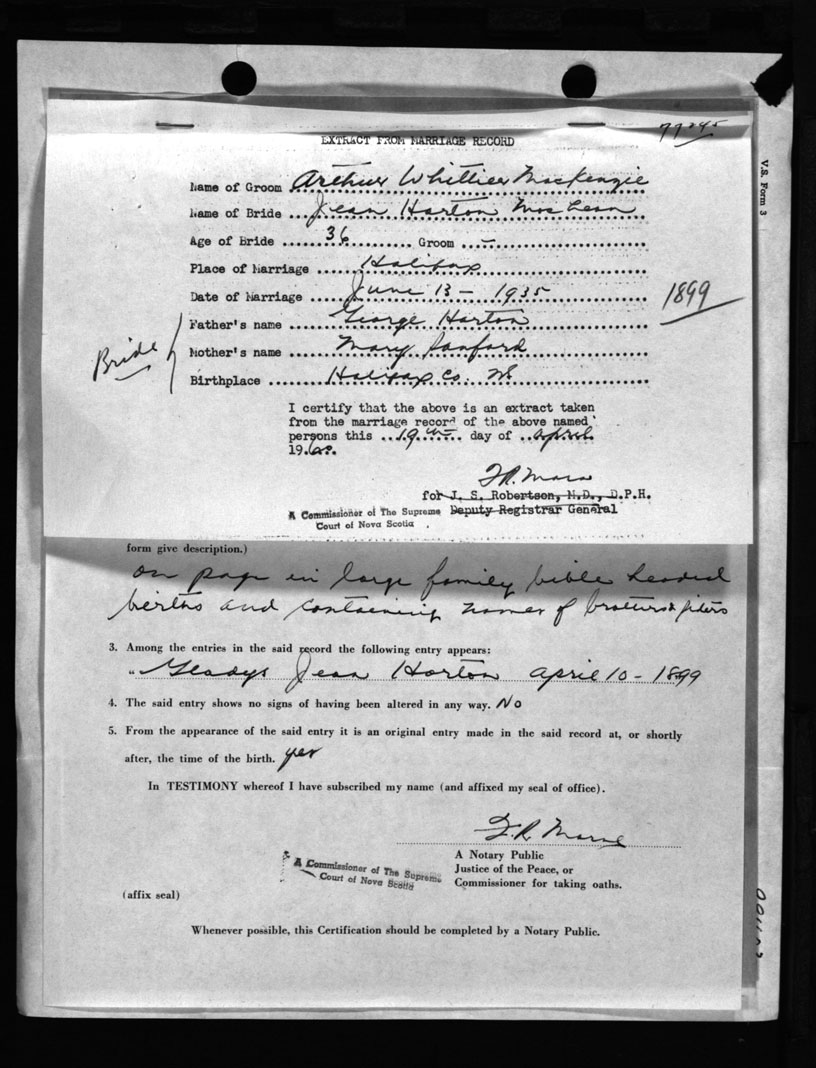 77245
EXTRACT FROM MARRIAGE RECORD
V.S. Form 3
Name of Groom Arthur Whittier MacKenzie
Name of Bride Jean Horton MacLean
Age of Bride 36 Groom –
Place of Marriage Halifax
Date of Marriage June 13 – 1935
1899
Father's name George Horton
Bride
Mother's name Mary Sanford
Birthplace Halifax Co. NS
I certify that the above is an extract taken
from the marriage record of the above named
persons this 19th day of April
1960.
for J. S. Robertson, M.D., D.P.H.
Deputy Registrar General
A Commissioner of The Supreme
Court of Nova Scotia
form give description.)
on page in large family bible headed
births and containing names of brothers & sisters
3. Among the entries in the said record the following entry appears:
"Gladys Jean Horton April 10 – 1899
4. The said entry shows no signs of having been altered in any way. No
5. From the appearance of the said entry it is an original entry made in the said record at, or shortly
after, the time of the birth. yes
In TESTIMONY whereof I have subscribed my name (and affixed my seal of office).
A Notary Public
Justice of the Peace, or
Commissioner for taking oaths.
A Commissioner of The Supreme
Court of Nova Scotia
(affix seal)
Whenever possible, this Certification should be completed by a Notary Public.